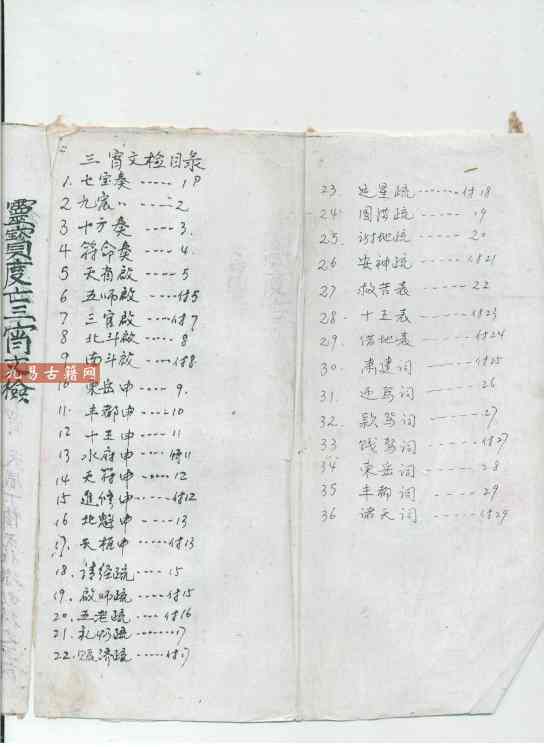 靈寶度亡三宵文檢
九易古籍网
三宵文检目录
1. 七宝奏 ----- 1P
2 九宸〃 ---- 2
3 十方奏 ---- 3.
4 符命奏 ---- 4.
5 天省啟 ---- 5
6 五师啟 ---- 付5
7 三官啟 ---- 付7
8 北斗啟 ---- 8
9 南斗啟 ---- 付8
10 東岳申 --- 9.
11. 丰都申 ---- 10
12 十王申 --- 11
13 水府申 ---- 付11
14 天符申 ---- 12
15 進修申 ---- 付12
16 北魁申 ---- 13
17. 天枢申 ---- 付13
18. 请经疏 ---- 15
19. 啟师疏 ---- 付15
20. 五老疏 ---- 付16
21. 礼 疏 ----- 17
22. 赈济疏 ----- 付17
23. 延星疏 ------ 付18
24. 圆满疏 ---- 19
25. 谢地疏 ---- 20
26 安神疏 ---- 付21
27 救苦表 ----- 22
28. 十王表 ---- 付23
29. 借地表 ----- 付24
30. 肃建词 ---- 付25
31. 迎驾词 ----- 26
32. 款驾词 ------ 27.
33 饯驾词 ------ 付27
34 東岳词 ------ 28
35 丰都词 ------ 29
36 诸天词 ----- 付29